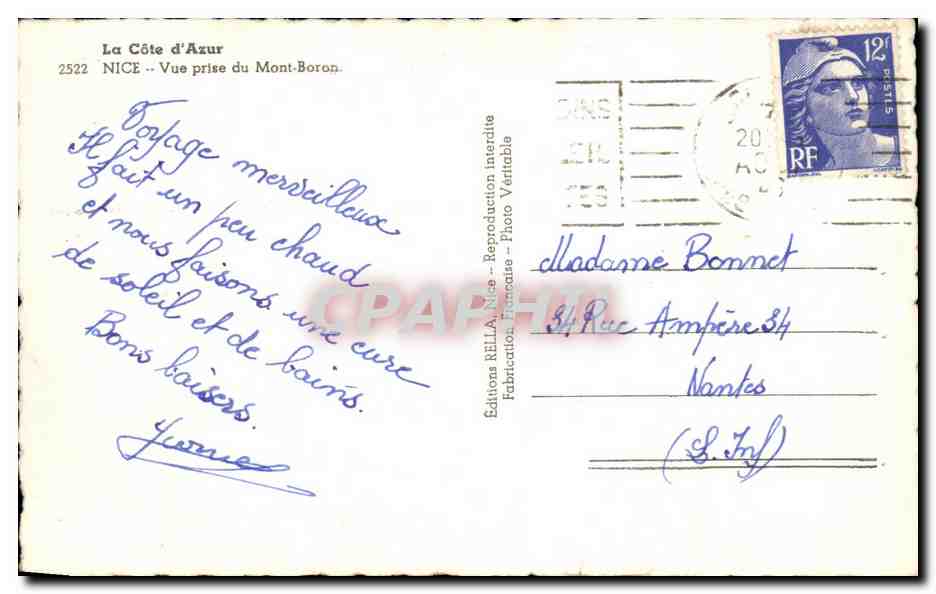 La Côte d'Azur
2522 NICE -- Vue prise du Mont-Boron.
Voyage merveilleux
Il fait un peu chaud
et nous faisons une cure
de soleil et de bains.
Bons baisers.
Éditions RELLA, Nice -- Reproduction interdite
Fabrication Française -- Photo Véritable
12f
POSTES
RF
20
Madame Bonnet
34 Rue Ampère 34
Nantes
(L. Inf)
CPAPHIL